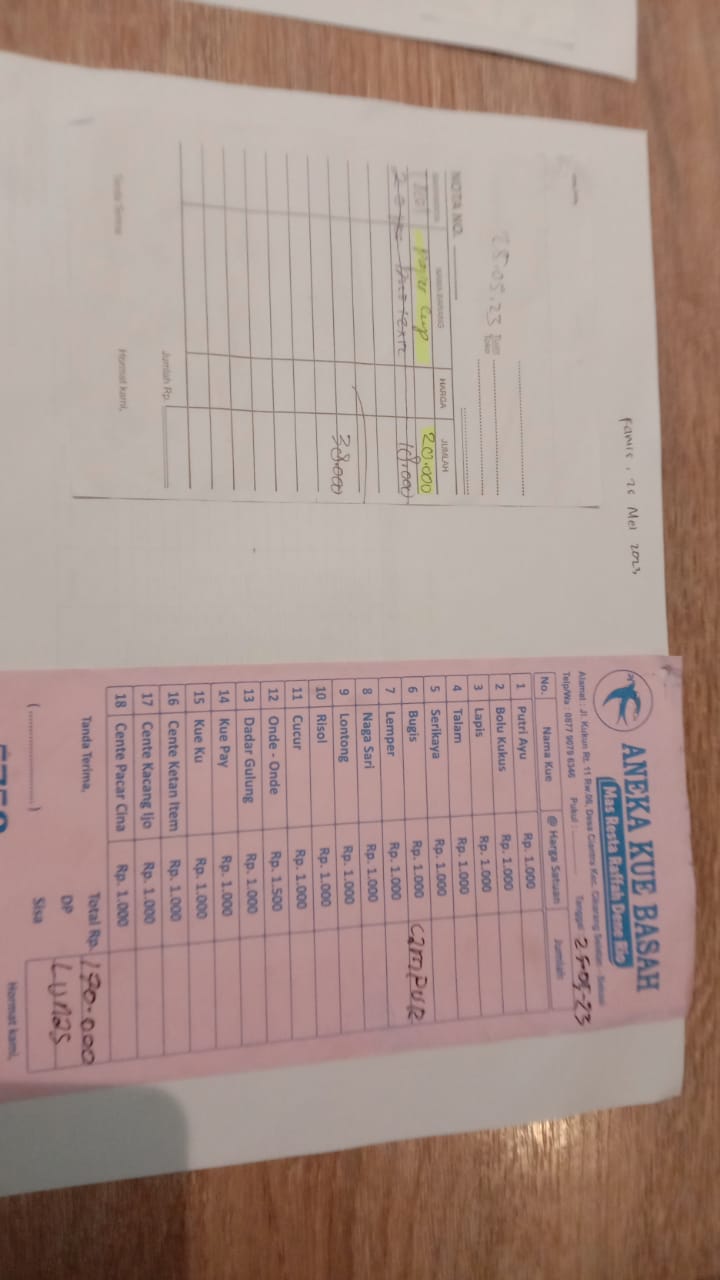 Kamis, 25 Mei 2023
25.05.23
Tuan
Toko
NOTA NO.
NAMA BARANG HARGA JUMLAH
Paper Cup 20.000
18.000
38.000
Jumlah Rp.
Tanda Terima Hormat kami,
ANEKA KUE BASAH
Alamat : Jl. Kukun Rt. 11 Rw.06, Desa Ciantra Kec. Cikarang Selatan - Bekasi
Telp/Wa : 0877 9079 6346 Pukul : Tanggal 25-05-23
No. Nama Kue @ Harga Satuan Jumlah
1 Putri Ayu Rp. 1.000
2 Bolu Kukus Rp. 1.000
3 Lapis Rp. 1.000
4 Talam Rp. 1.000
5 Serikaya Rp. 1.000
6 Bugis Rp. 1.000 CAMPUR
7 Lemper Rp. 1.000
8 Naga Sari Rp. 1.000
9 Lontong Rp. 1.000
10 Risol Rp. 1.000
11 Cucur Rp. 1.000
12 Onde - Onde Rp. 1.500
13 Dadar Gulung Rp. 1.000
14 Kue Pay Rp. 1.000
15 Kue Ku Rp. 1.000
16 Cente Ketan Item Rp. 1.000
17 Cente Kacang Ijo Rp. 1.000
18 Cente Pacar Cina Rp. 1.000
Tanda Terima, Total Rp. 190.000
DP LUNAS
Sisa
(....................)
Hormat kami,